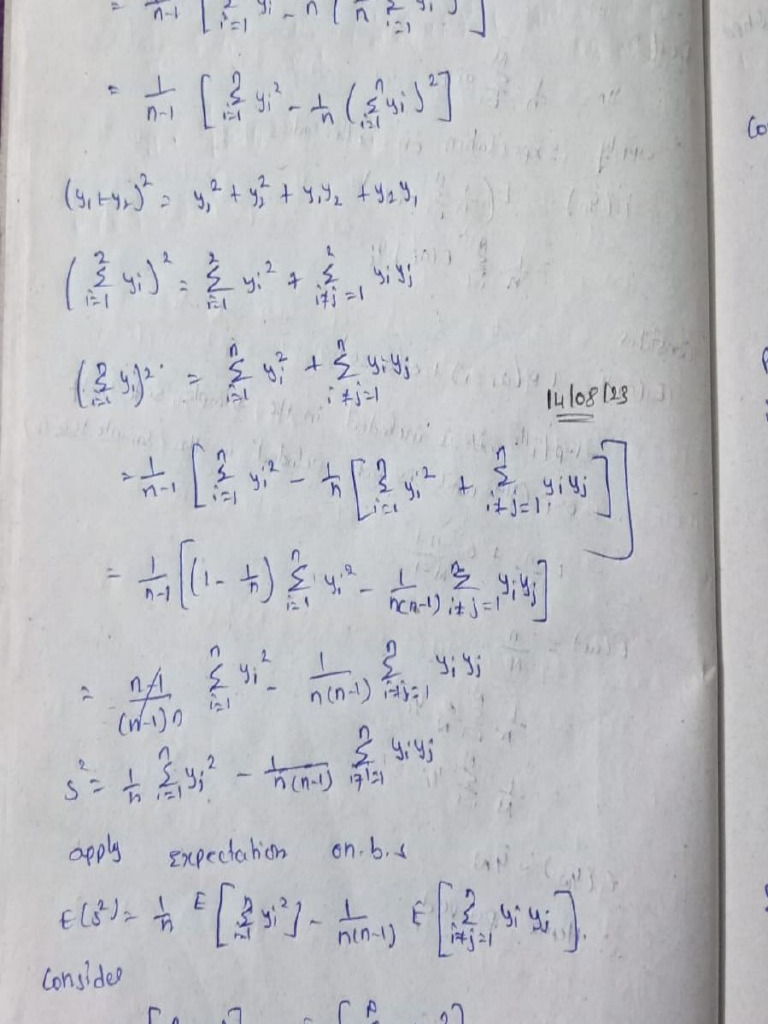 = 1/(n-1) [ Σ_{i=1} yi² - n ( 1/n Σ_{i=1} yi )² ]
= 1/(n-1) [ Σ_{i=1}^{n} yi² - 1/n ( Σ_{i=1}^{n} yi )² ]
(y₁+y₂)² = y₁² + y₂² + y₁y₂ + y₂y₁
( Σ_{i=1}^{2} yi )² = Σ_{i=1}^{2} yi² + Σ_{i≠j=1}^{2} yiyj
( Σ_{i=1}^{n} yi )² = Σ_{i=1}^{n} yi² + Σ_{i≠j=1}^{n} yiyj
14/08/23
= 1/(n-1) [ Σ_{i=1}^{n} yi² - 1/n [ Σ_{i=1}^{n} yi² + Σ_{i≠j=1}^{n} yiyj ] ]
= 1/(n-1) [ (1 - 1/n) Σ_{i=1}^{n} yi² - 1/(n(n-1)) Σ_{i≠j=1}^{n} yiyj ]
= (n-1)/((n-1)n) Σ_{i=1}^{n} yi² - 1/(n(n-1)) Σ_{i≠j=1}^{n} yiyj
s² = 1/n Σ_{i=1}^{n} yi² - 1/(n(n-1)) Σ_{i≠j=1}^{n} yiyj
apply expectation on.b.s
E(s²) = 1/n E [ Σ_{i=1}^{n} yi² ] - 1/(n(n-1)) E [ Σ_{i≠j=1}^{n} yi yj ].
Consider